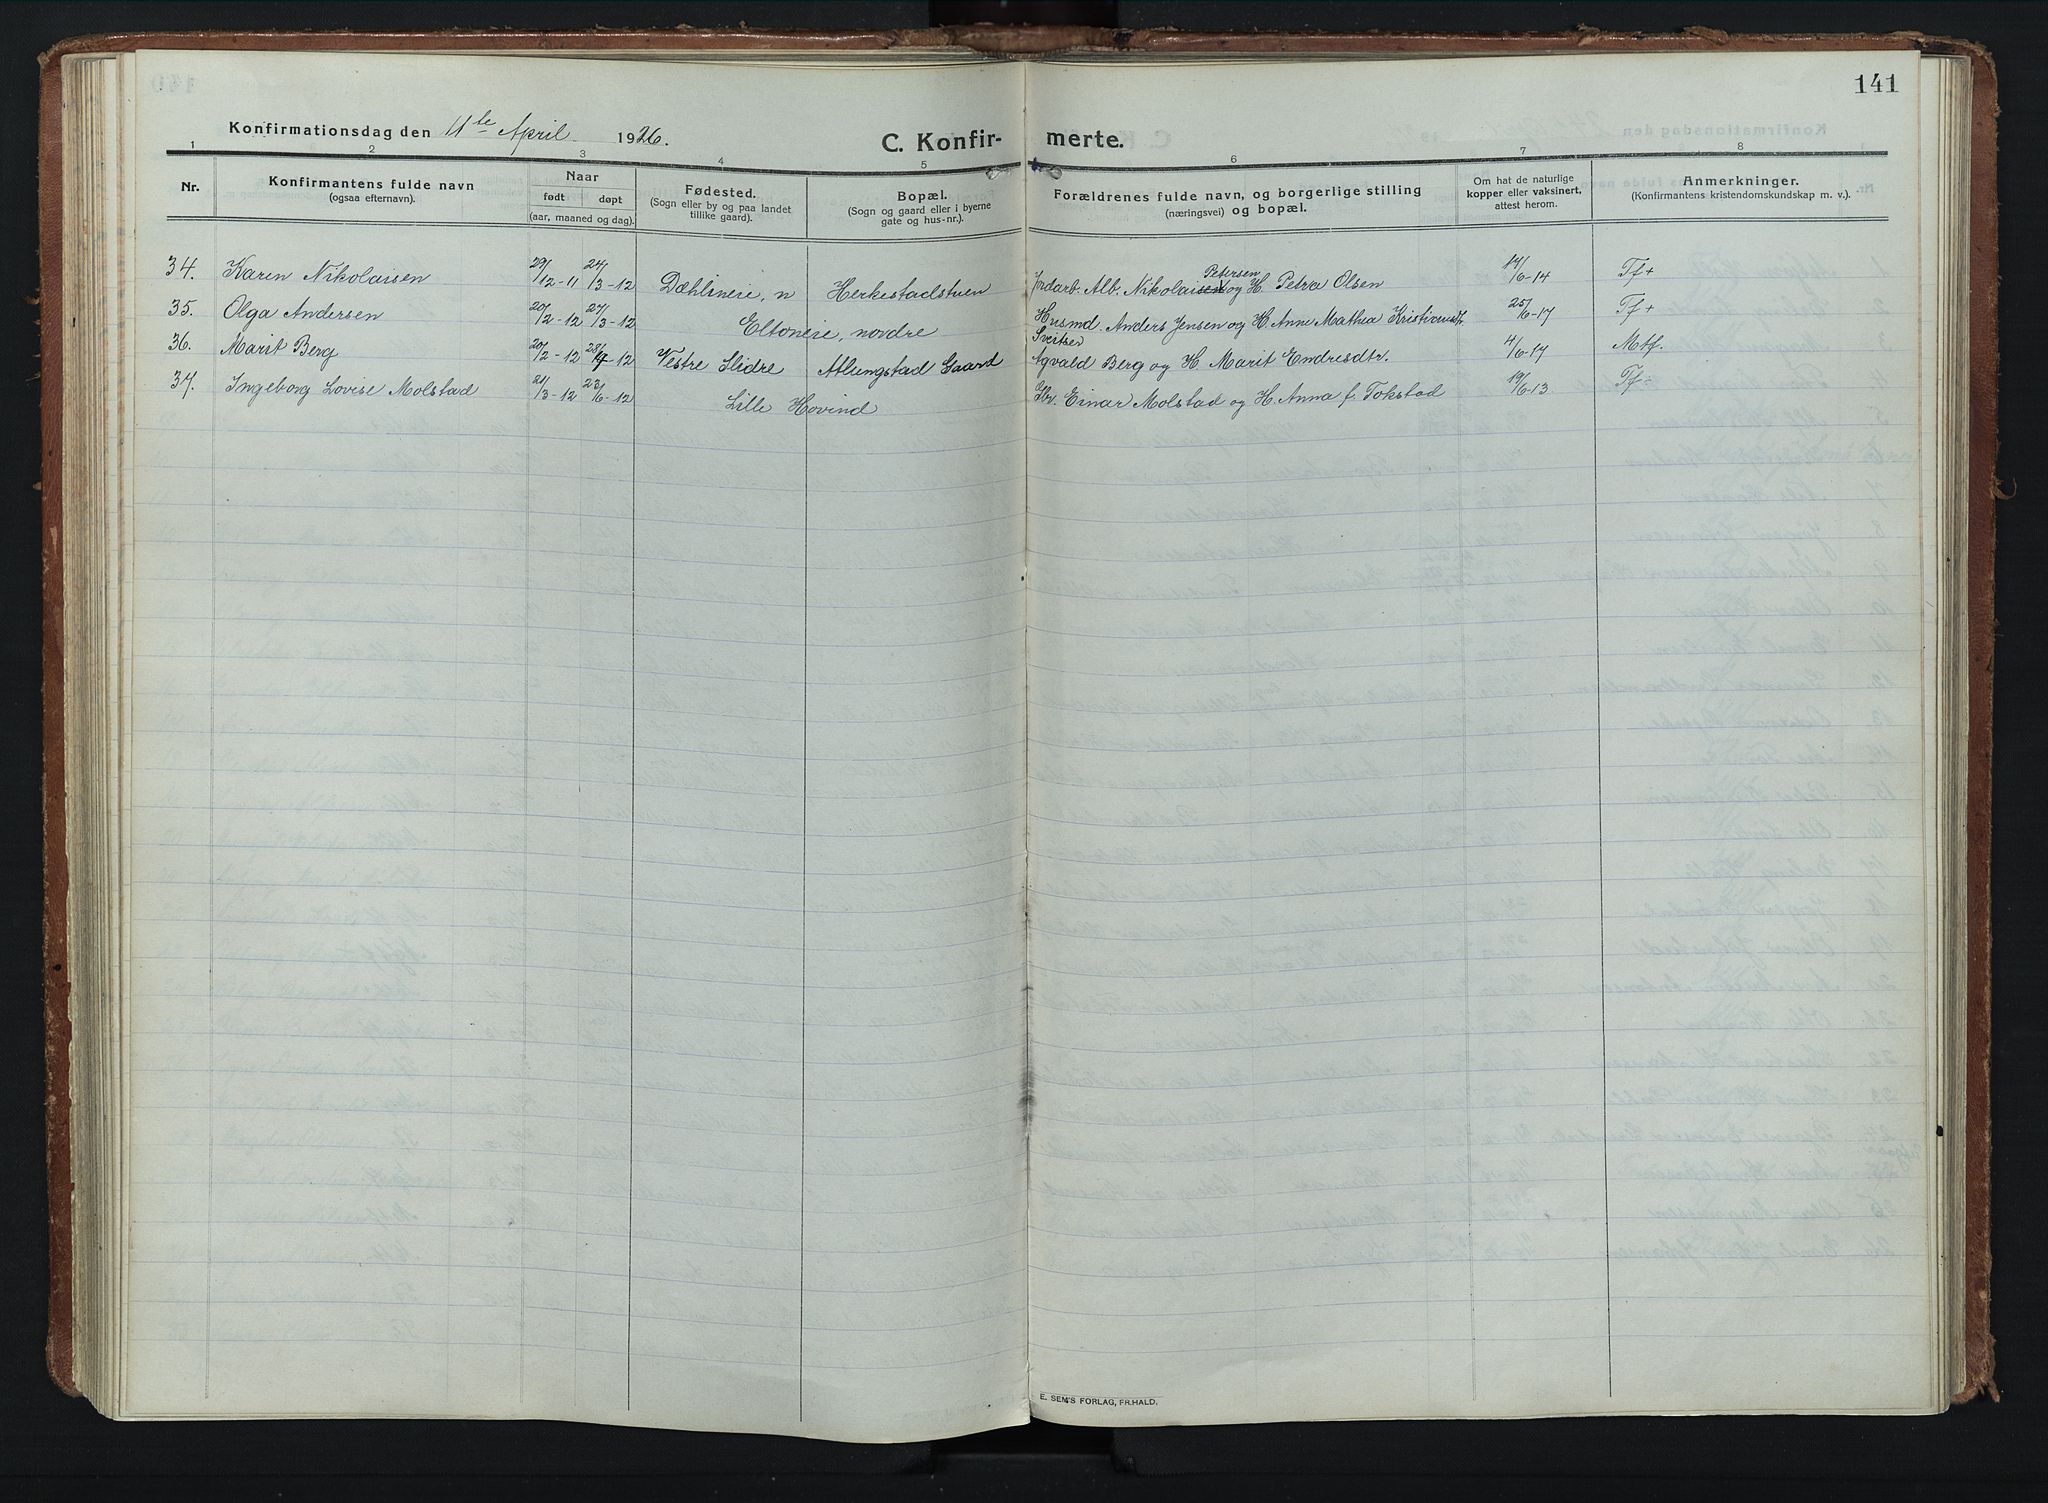 141
Konfirmationsdag den 11te April 1926.
C. Konfir- merte.
1 2 3 4 5 6 7 8
Nr.
Konfirmantens fulde navn
(ogsaa efternavn).
Naar
født døpt
(aar, maaned og dag).
Fødested.
(Sogn eller by og paa landet
tillike gaard).
Bopæl.
(Sogn og gaard eller i byerne
gate og hus-nr.).
Forældrenes fulde navn, og borgerlige stilling
(næringsvei) og bopæl.
Om hat de naturlige
kopper eller vaksinert,
attest herom.
Anmerkninger.
(Konfirmantens kristendomskundskap m. v.).
Petersen
34. Karen Nikolaisen 29/12-11 24/3-12 Dæhlineie, n Herkestadstuen Jordarb. Alb. Nikolaisen og H. Petra Olsen 17/6-14 Tf+
35. Olga Andersen 20/2-12 27/3-12 Eltoneie, nordre Husmd. Anders Jensen og H. Anne Mathea Kristiansdtr 25/6-17 Tf+
36. Marit Berg 20/2-12 28/4-12 Vestre Slidre Atlungstad Gaard Sveitser
Agvald Berg og H. Marit Endresdtr. 4/6-17 Mtf.
37. Ingeborg Lovise Molstad 21/3-12 23/6-12 Lille Hovind Gbr. Einar Molstad og H. Anna f. Tokstad 19/6-13. Tf÷
E. SEM'S FORLAG, FR.HALD.